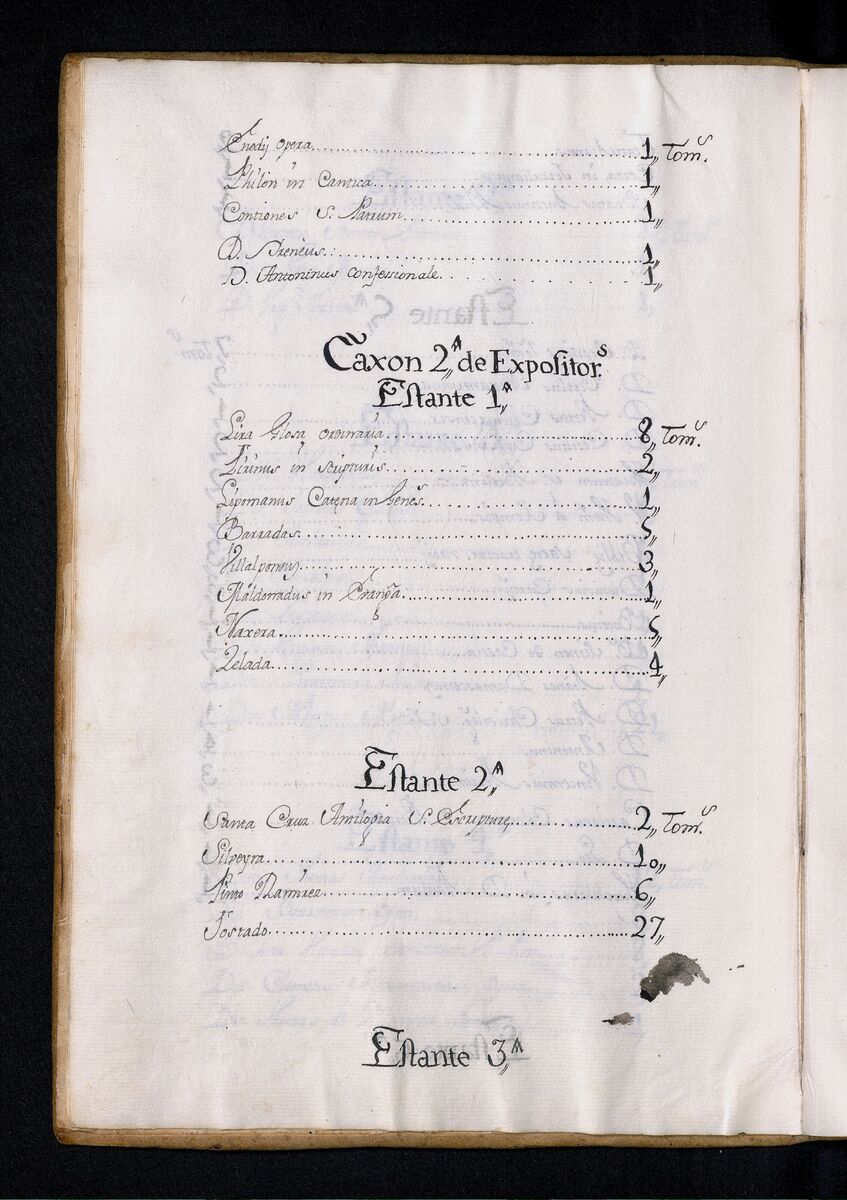 Enodij opera 1,, Tom.s
Philon in Cantica 1,,
Contiones S. Patrum 1,,
D. Ireneus 1,,
D. Antoninus Confessionale 1,,
Caxon 2,,ª de Expositor.s
Estante 1,,ª
Lira Glosa ordinaria 8,, Tom.s
Tirinus in scripturis 2,,
Lipomanus Catena in Genes. 1,,
Barradas 5,,
Villalpon 3,,
Maldonadus in 1,,
Naxera 5,,
Zelada 4,,
Estante 2,,ª
Santa Cruz Antilogia S. Scripture 2,, Tom.s
Silveyra 10,,
Pinto Ramirez 6,,
Tostado 27,,
Estante 3,,ª